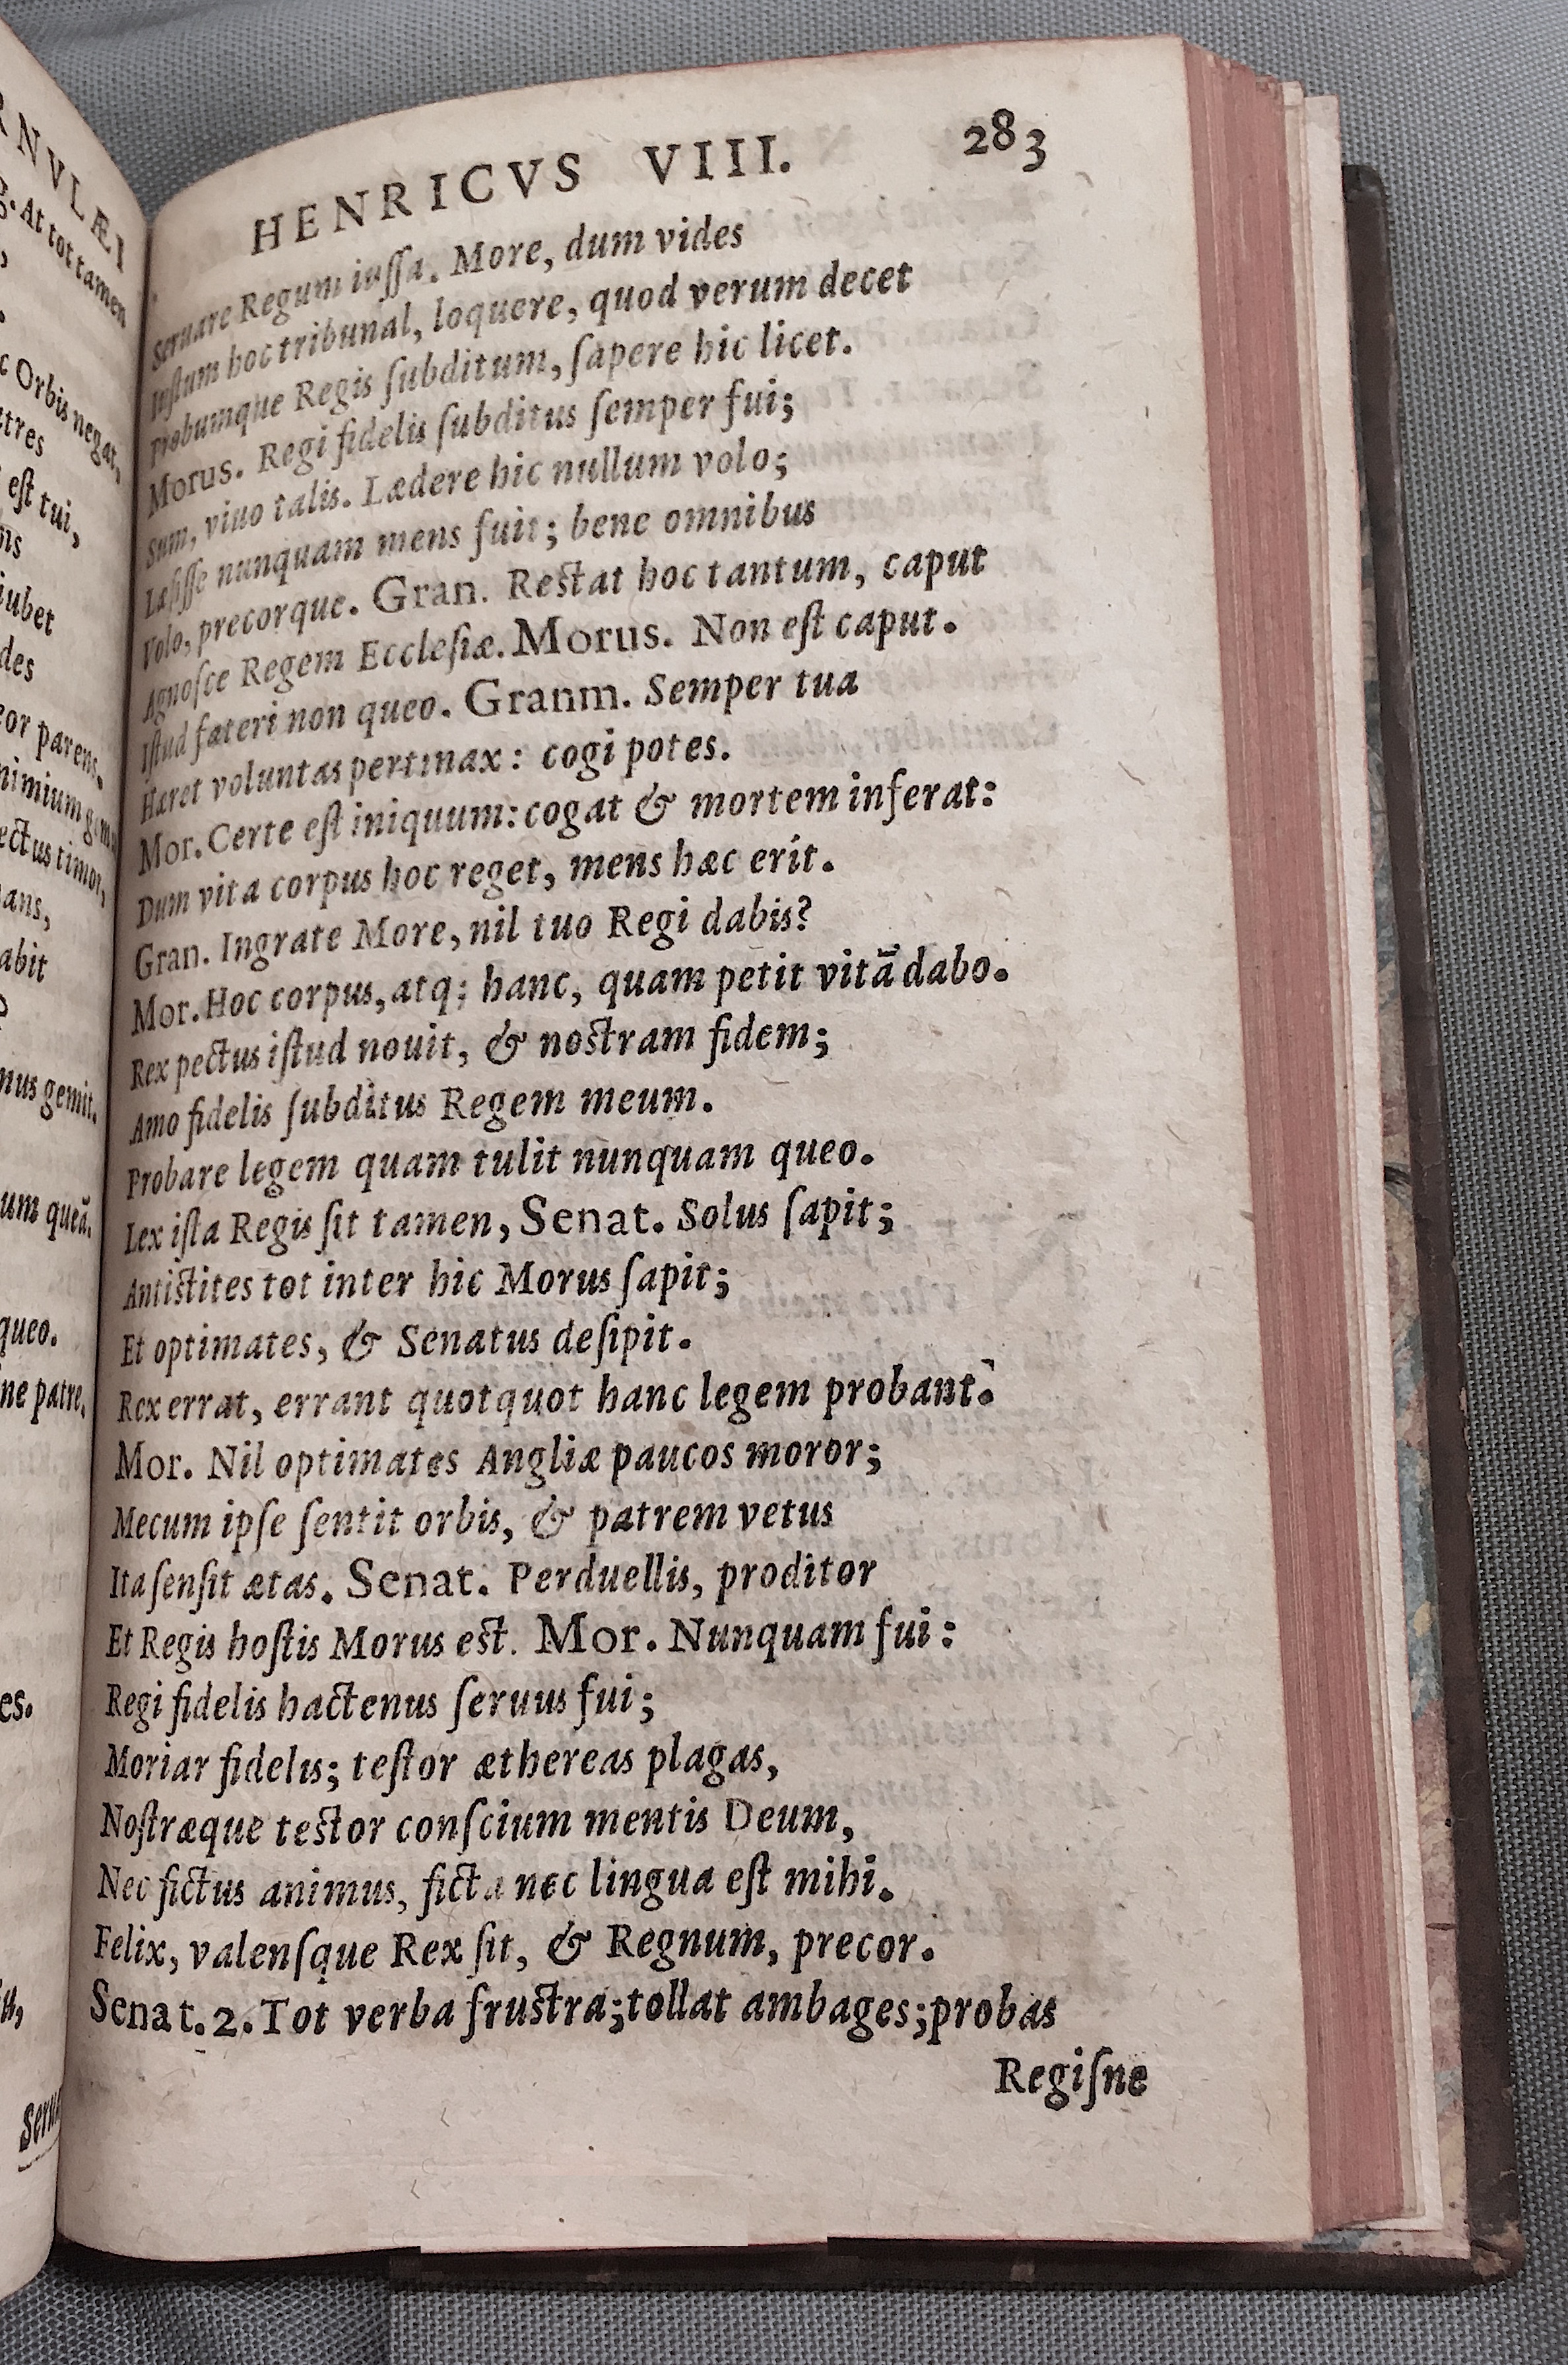 RNVLÆI
At tot tamen
Orbis negat,
est tui,
iubet
des
parens.
ectus timor,
ans,
abit
nus gemit.
um queã.
queo.
ne patre.
es.
HENRICVS VIII. 283
seruare Regum iuſſa. More, dum vides
Iuſtum hoc tribunal, loquere, quod verum decet
Probumque Regis ſubditum, ſapere hic licet.
Morus. Regi fidelis ſubditus ſemper fui;
Sum, viuo talis. Lædere hic nullum volo;
Læſiſſe nunquam mens fuit; bene omnibus
Volo, precorque. Gran. Restat hoc tantum, caput
Agnoſce Regem Eccleſiæ. Morus. Non eſt caput.
Iſtud fateri non queo. Granm. Semper tua
Hæret voluntas pertinax: cogi potes.
Mor. Certe eſt iniquum: cogat & mortem inferat:
Dum vita corpus hoc reget, mens hæc erit.
Gran. Ingrate More, nil tuo Regi dabis?
Mor. Hoc corpus, atq; hanc, quam petit vitã dabo.
Rex pectus iſtud nouit, & nostram fidem;
Amo fidelis ſubditus Regem meum.
Probare legem quam tulit nunquam queo.
Lex iſta Regis ſit tamen, Senat. Solus ſapit;
Antistites tot inter hic Morus ſapit;
Et optimates, & Senatus deſipit.
Rex errat, errant quotquot hanc legem probant.
Mor. Nil optimates Angliæ paucos moror;
Mecum ipſe ſentit orbis, & patrem vetus
Ita ſenſit ætas. Senat. Perduellis, proditor
Et Regis hoſtis Morus est. Mor. Nunquam fui:
Regi fidelis hactenus ſeruus fui;
Moriar fidelis; teſtor æthereas plagas,
Noſtræque testor conſcium mentis Deum,
Nec fictus animus, ficta nec lingua eſt mihi.
Felix, valenſque Rex ſit, & Regnum, precor.
Senat. 2. Tot verba frustra; tollat ambages; probas
Regiſne